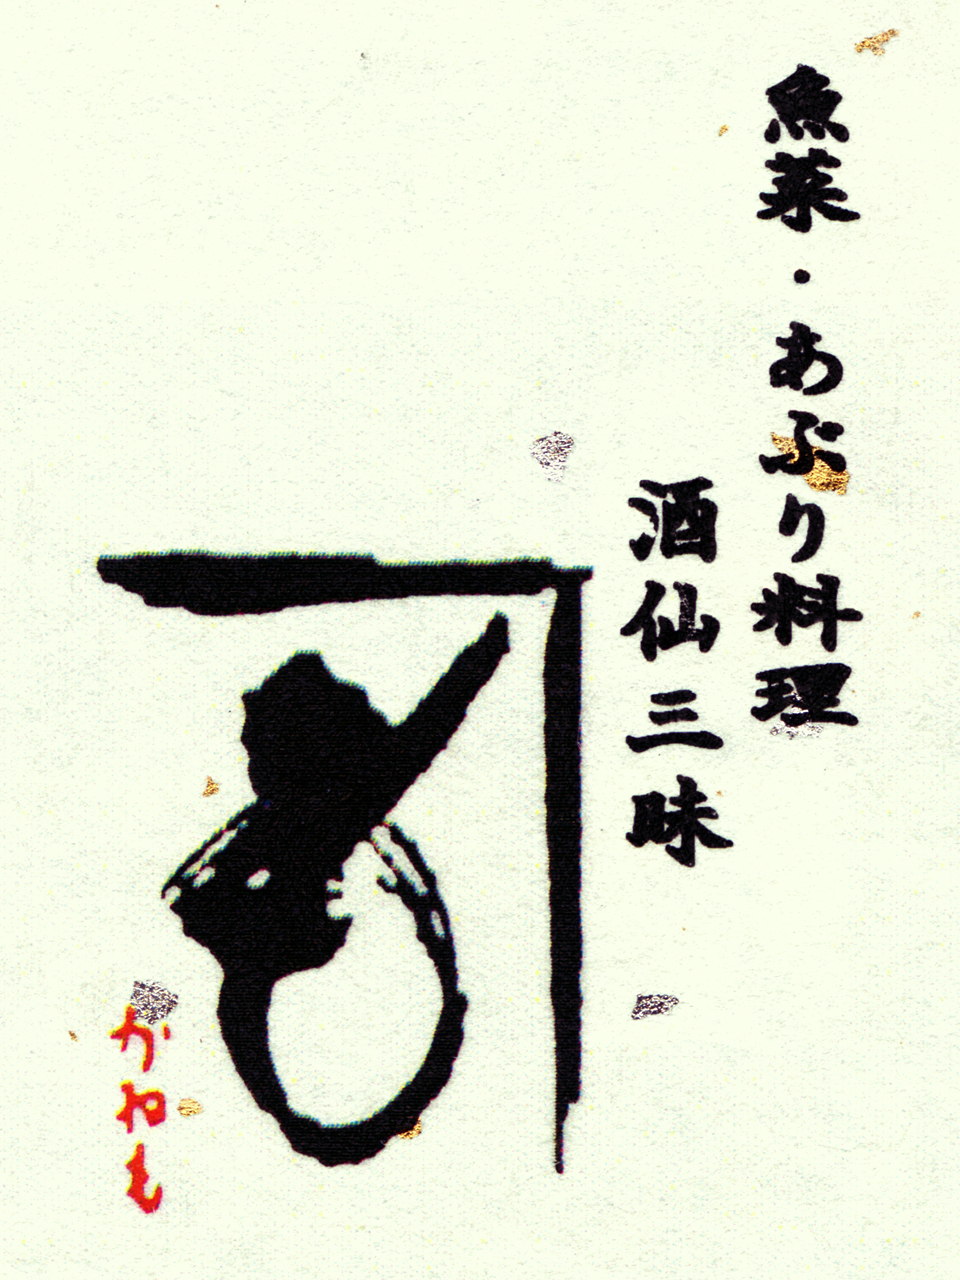 魚菜・あぶり料理
酒仙三昧
かねも